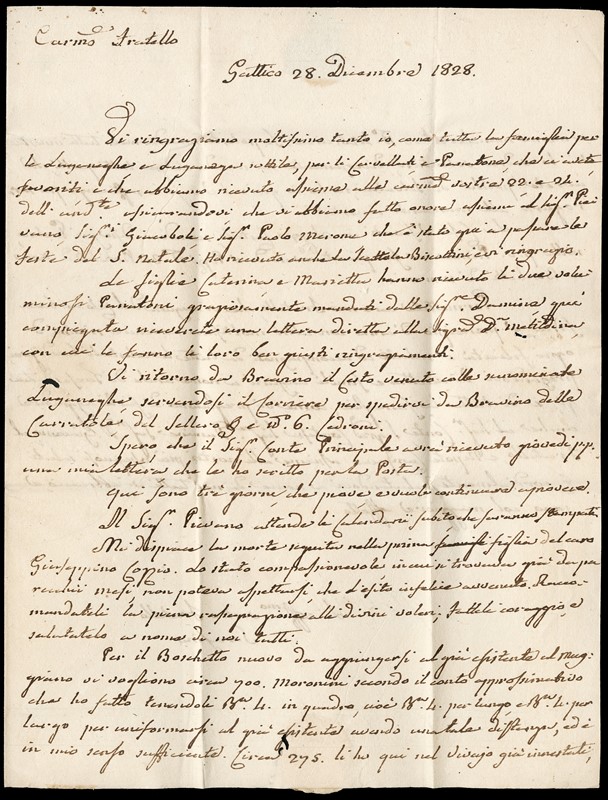 Carmo Fratello
Gattico 28. Dicembre 1828.
Vi ringraziamo moltissimo tanto io, come tutta la famiglia per
le Luganeghe e Luganega sottile, per li Cervellati e Panatone che ci avete
favoriti e che abbiamo ricevuto assieme alle carme vostre 22. e 24.
dell' andte assicurandovi che vi abbiamo fatto onore assieme al Sigr Pie
vano, Sigr Giacoboli e Sigr Paolo Merone che è stato qui a passare le
feste del S. Natale. Ho ricevuto anche la Scattola Biscottini, e vi ringrazio.
Le figlie Caterina e Marietta hanno ricevuto li due volu
minosi Panatoni graziosamente mandati dalla Sigra Damina, qui
compiegata riceverete una lettera diretta alla Sigra Da Metildina
con cui le fanno li loro ben giusti ringraziamenti.
Vi ritorno da Brevino il Cesto venuto colle surnominate
Luganeghe servendosi il Corriere per spedirvi da Brevino delle
Carratole del Sellero 8 e No 6. Cedroni.
Spero che il Sigr Conte Principale avrà ricevuto giovedì pp.
una mia lettera che le ho scritto per la Posta.
Qui sono tre giorni che piove e vuole continuare a piovere.
Il Sigr Pievano attende li Calendarii subito che saranno stampati.
Mi dispiace la morte seguita nella prima figlia del caro
Giuseppino Coppio. Lo stato compassionevole in cui si trovava già da pa
recchi mesi non poteva aspettarsi che l'esito infelice avvenuto. Racco
mandateli la piena rassegnazione alli divini voleri, fatteli coraggio, e
salutatelo a nome di noi tutti.
Per il Boschetto nuovo da aggiungersi al già esistente al Mug
giano vi vogliono circa 900. Moronini secondo il conto approssimativo
che ho fatto tenendoli Bra 4. in quadro, cioè Bra 4. per lungo e Bra 4. per
largo per uniformarsi al già esistente avendo una tale distanza, ed è
in mio senso sufficiente. Circa 275. li ho qui nel Vivajo già innestati,